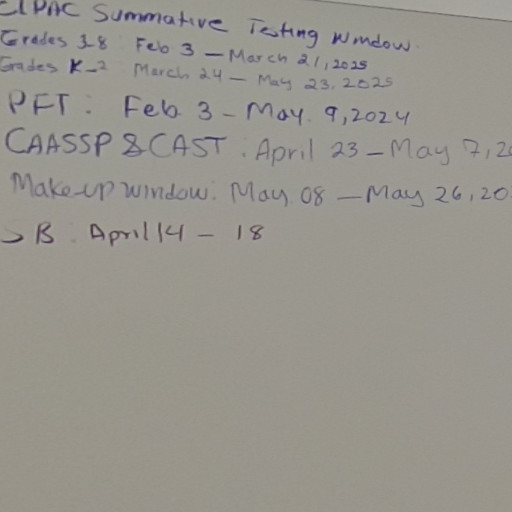 ELPAC Summative Testing Window
Grades 3-8: Feb 3 - March 21, 2025
Grades K-2 March 24 - May 23, 2025
PFT: Feb 3 - May. 9, 2024
CAASSP & CAST: April 23 - May 7, 20
Make-up window: May 08 - May 26, 20
SB: April 14 - 18